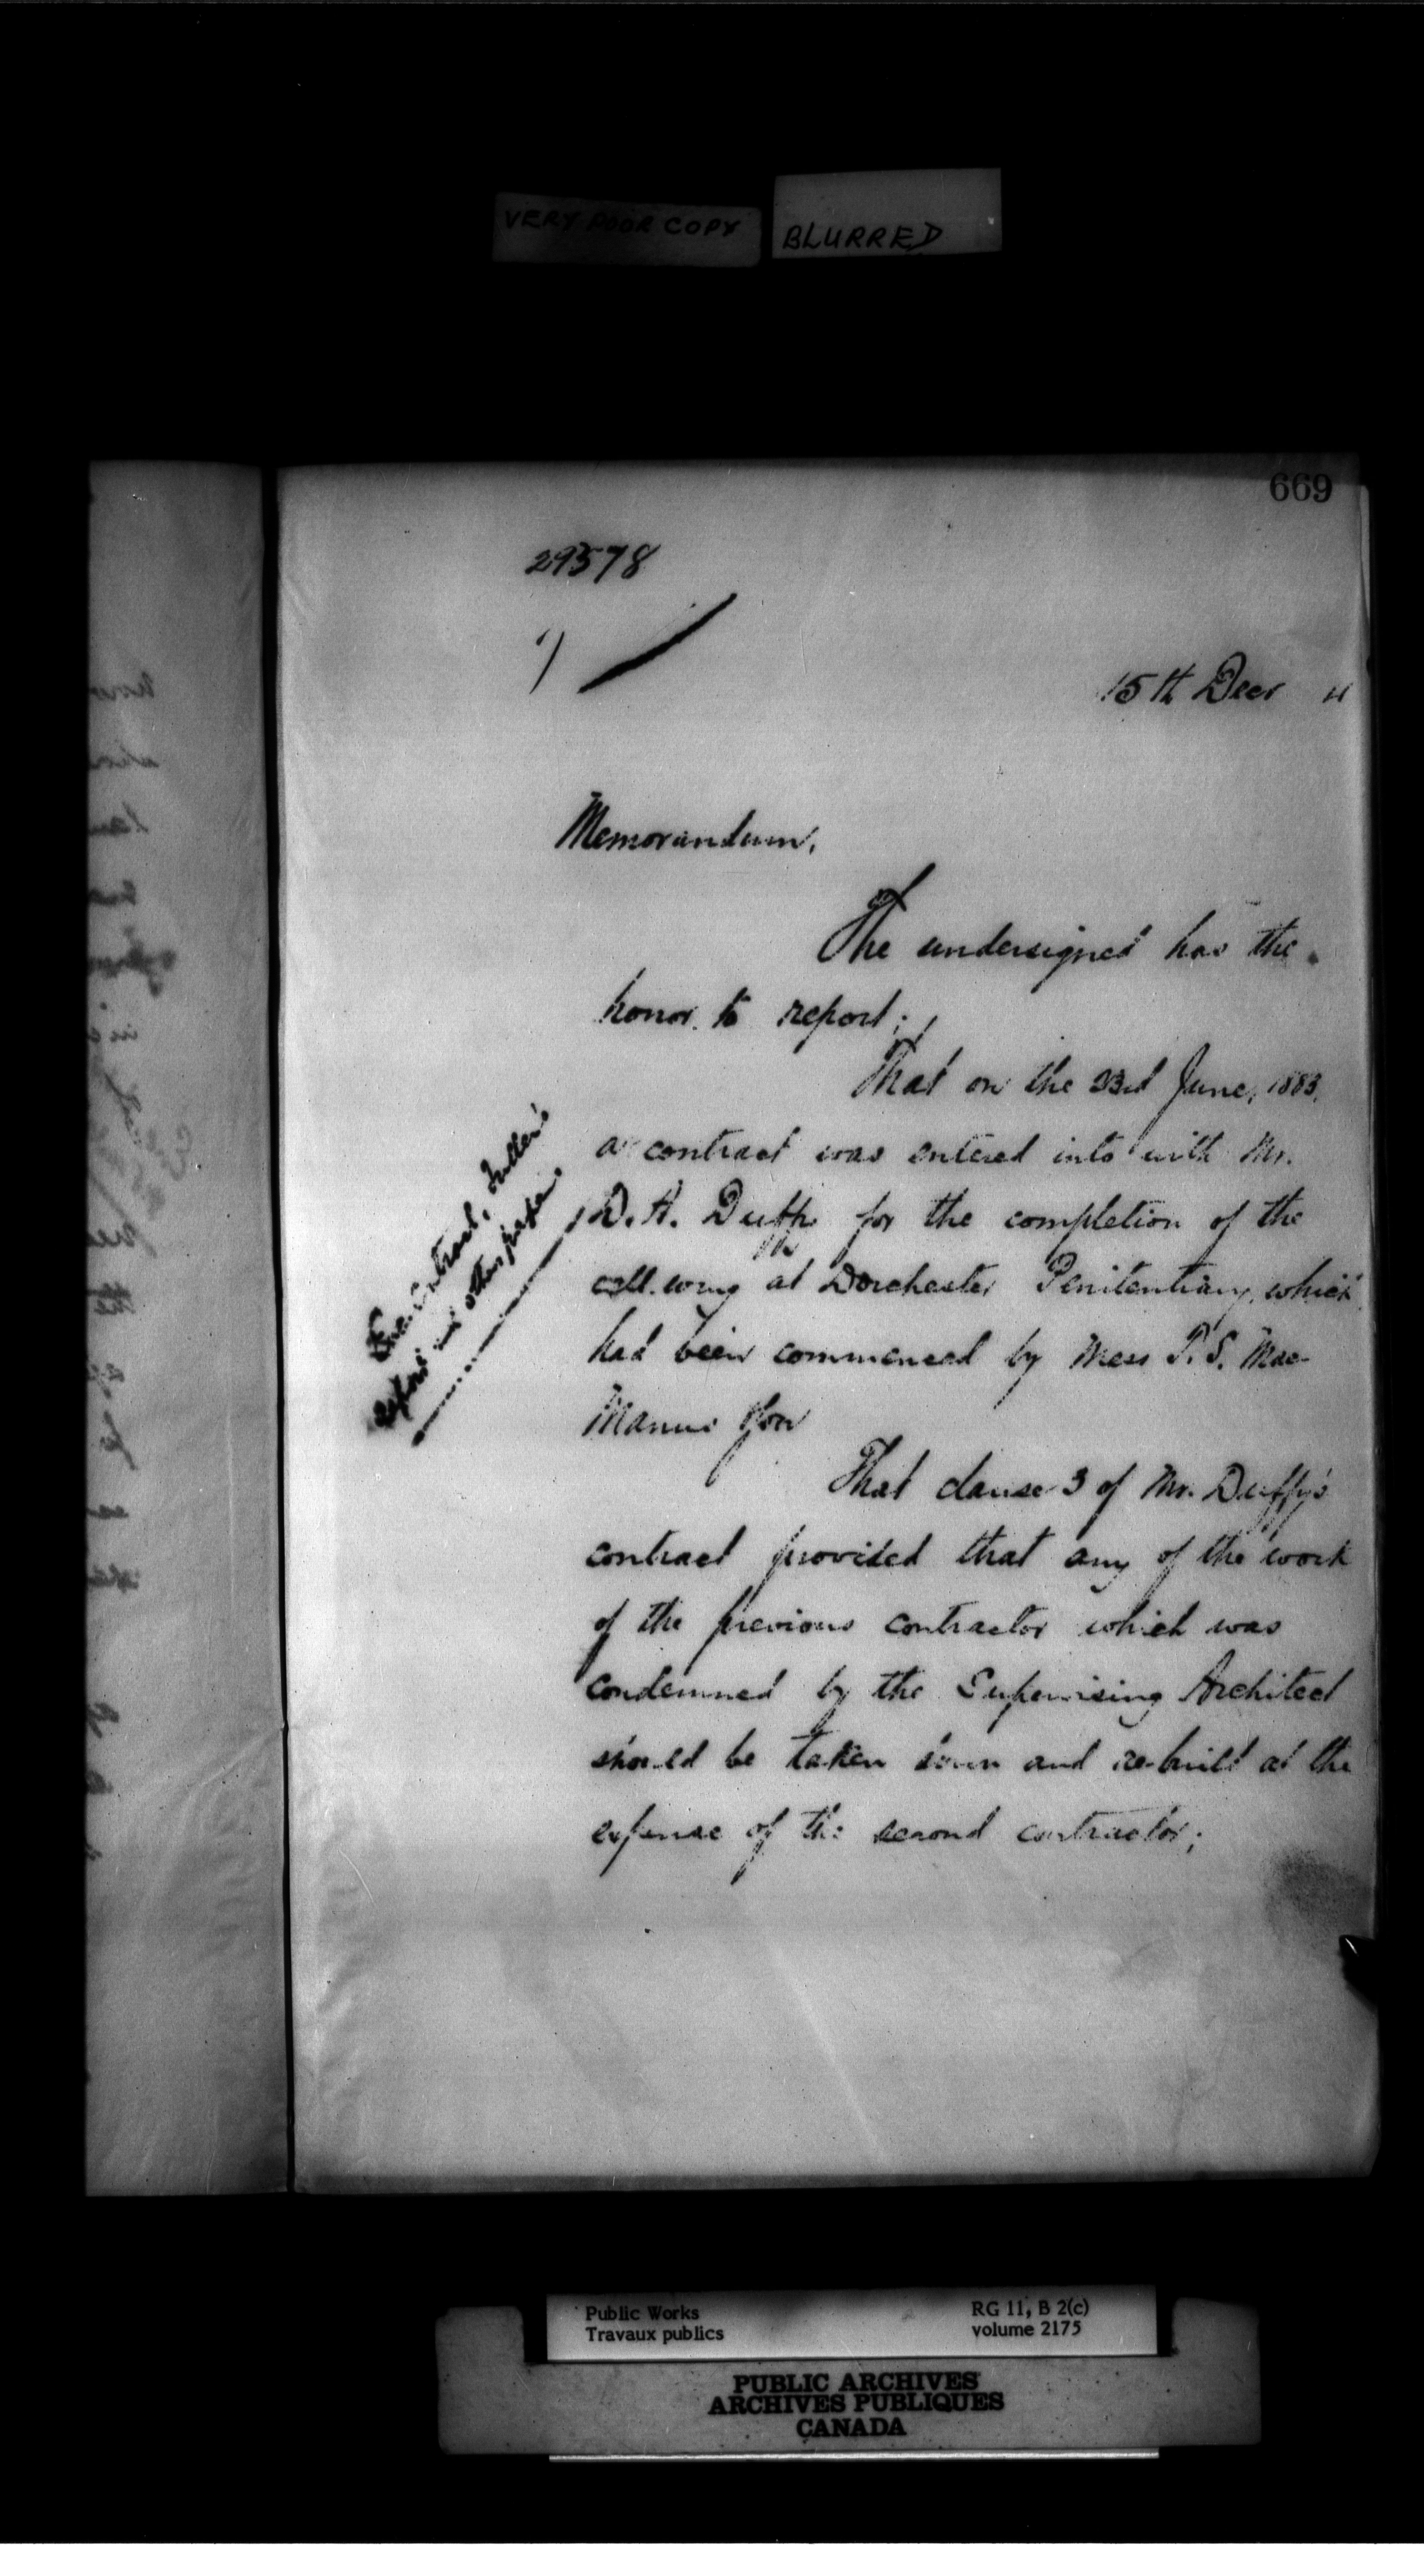 VERY POOR COPY
BLURRED
669
29578
1)
15th Decr
Memorandum,
The undersigned has the
honor to report;
That on the 23rd June, 1883,
a contract was entered into with Mr.
D. A. Duffy for the completion of the
cell wing at Dorchester Penitentiary, which
had been commenced by Mess P. S. Mac-
Manus
That clause 3 of Mr. Duffy's
contract provided that any of the work
of the previous contractor which was
condemned by the Supervising Architect
should be taken down and re-built at the
expense of the second contractor;
contract, Fuller's
report and other papers
Public Works
Travaux publics
RG 11, B 2(c)
volume 2175
PUBLIC ARCHIVES
ARCHIVES PUBLIQUES
CANADA